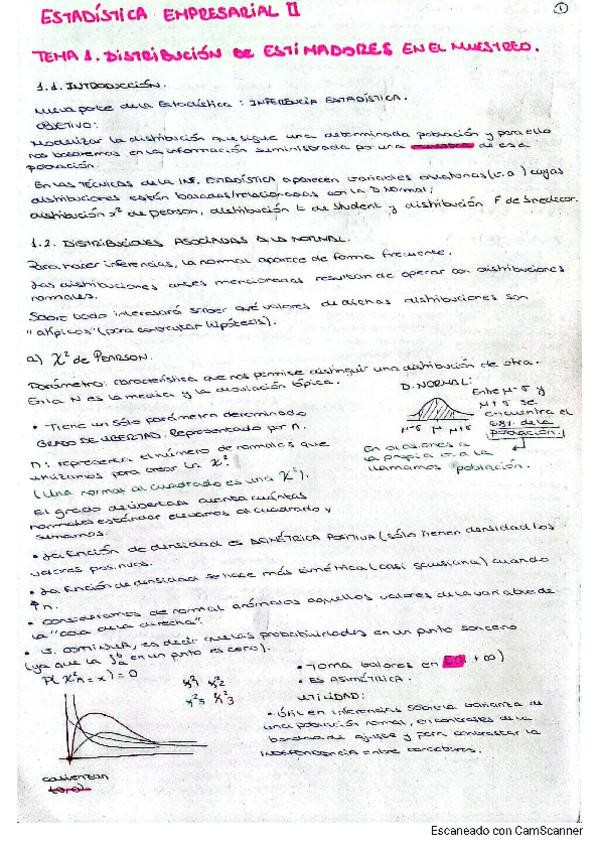 ESTADÍSTICA EMPRESARIAL II
1
TEMA 1. DISTRIBUCIÓN DE ESTIMADORES EN EL MUESTREO.
1.1. INTRODUCCIÓN.
Nueva parte de la Estadística: INFERENCIA ESTADÍSTICA.
OBJETIVO:
Modelizar la distribución que sigue una determinada población y para ello
nos basaremos en la información suministrada por una de esa
población.
En las TÉCNICAS de la INF. ESTADÍSTICA aparecen variables aleatorias (v.a) cuyas
distribuciones están basadas/relacionadas con la D. Normal;
distribución x² de pearson, distribución t de Student y distribución F de Snedecor.
1.2. DISTRIBUCIONES ASOCIADAS A LA NORMAL.
Para hacer inferencias, la normal aparece de forma frecuente.
Las distribuciones antes mencionadas resultan de operar con distribuciones
normales.
Sobre todo interesará saber qué valores de dichas distribuciones son
"atípicos" (para contrastar hipótesis).
a) χ² de PEARSON.
Parámetro: característica que nos permite distinguir una distribución de otra.
En la N es la media y la desviación típica.
D. NORMAL:
Entre μ-σ y
μ+σ se
encuentra el
68% de la
población.
μ-σ μ μ+σ
en alusiones a
la propia v.a la
llamamos población.
• Tiene un sólo parámetro determinado
GRADO DE LIBERTAD. Representado por n.
n: representa el número de normales que
utilizamos para crear la χ².
(Una normal al cuadrado es una χ²).
El grado de libertad cuenta cuántas
normales estándar elevamos al cuadrado y
sumamos.
• La función de densidad es ASIMÉTRICA POSITIVA (sólo tienen densidad los
valores positivos.
• La función de densidad se hace más simétrica (casi gaussiana) cuando
↑n.
• Consideramos de normal anómalos aquellos valores de la variable de
la "cola de la derecha".
• Es continua, es decir que las probabilidades en un punto son cero
(ya que la ∫ en un punto es cero).
P(χ²n = x) = 0
• Toma valores en [0, +∞)
• ES ASIMÉTRICA.
UTILIDAD:
• Útil en inferencias sobre la varianza de
una población normal, en contrastes de la
bondad de ajuste y para contrastar la
INDEPENDENCIA entre caracteres.
χ²1 χ²2
χ²5 χ²3
Escaneado con CamScanner